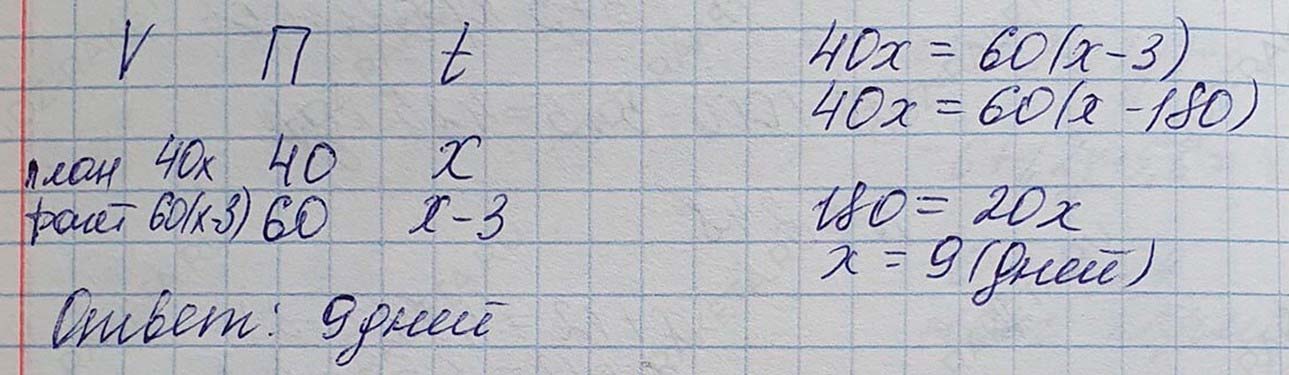 V П t
план 40x 40 x
факт 60(x-3) 60 x-3
Ответ: 9 дней
40x = 60(x-3)
40x = 60(x-180)
180 = 20x
x = 9 (дней)